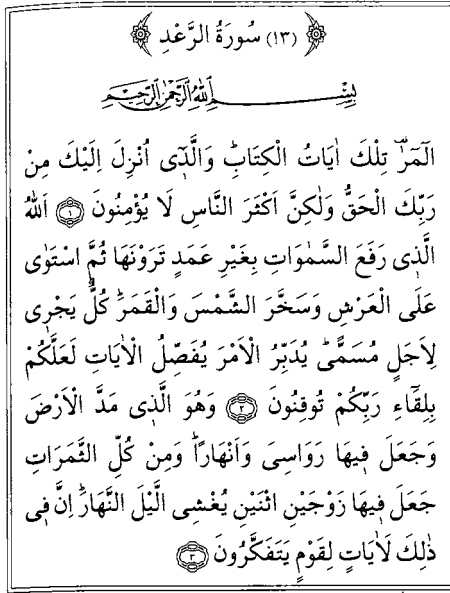 ﴿ (١٣) سُورَةُ الرَّعْدِ ﴾
بِسْمِ اللّٰهِ الرَّحْمٰنِ الرَّحِيمِ
الٓمٓرٰ۠ تِلْكَ اٰيَاتُ الْكِتَابِۜ وَالَّذ۪ٓى اُنْزِلَ اِلَيْكَ مِنْ
رَبِّكَ الْحَقُّ وَلٰكِنَّ اَكْثَرَ النَّاسِ لَا يُؤْمِنُونَ ﴿١﴾ اَللّٰهُ
الَّذ۪ى رَفَعَ السَّمٰوَاتِ بِغَيْرِ عَمَدٍ تَرَوْنَهَا ثُمَّ اسْتَوٰى
عَلَى الْعَرْشِ وَسَخَّرَ الشَّمْسَ وَالْقَمَرَۜ كُلٌّ يَجْر۪ى
لِاَجَلٍ مُسَمًّىۜ يُدَبِّرُ الْاَمْرَ يُفَصِّلُ الْاٰيَاتِ لَعَلَّكُمْ
بِلِقَٓاءِ رَبِّكُمْ تُوقِنُونَ ﴿٢﴾ وَهُوَ الَّذ۪ى مَدَّ الْاَرْضَ
وَجَعَلَ ف۪يهَا رَوَاسِىَ وَاَنْهَارًاۜ وَمِنْ كُلِّ الثَّمَرَاتِ
جَعَلَ ف۪يهَا زَوْجَيْنِ اثْنَيْنِ يُغْشِى الَّيْلَ النَّهَارَۜ اِنَّ ف۪ى
ذٰلِكَ لَاٰيَاتٍ لِقَوْمٍ يَتَفَكَّرُونَ ﴿٣﴾